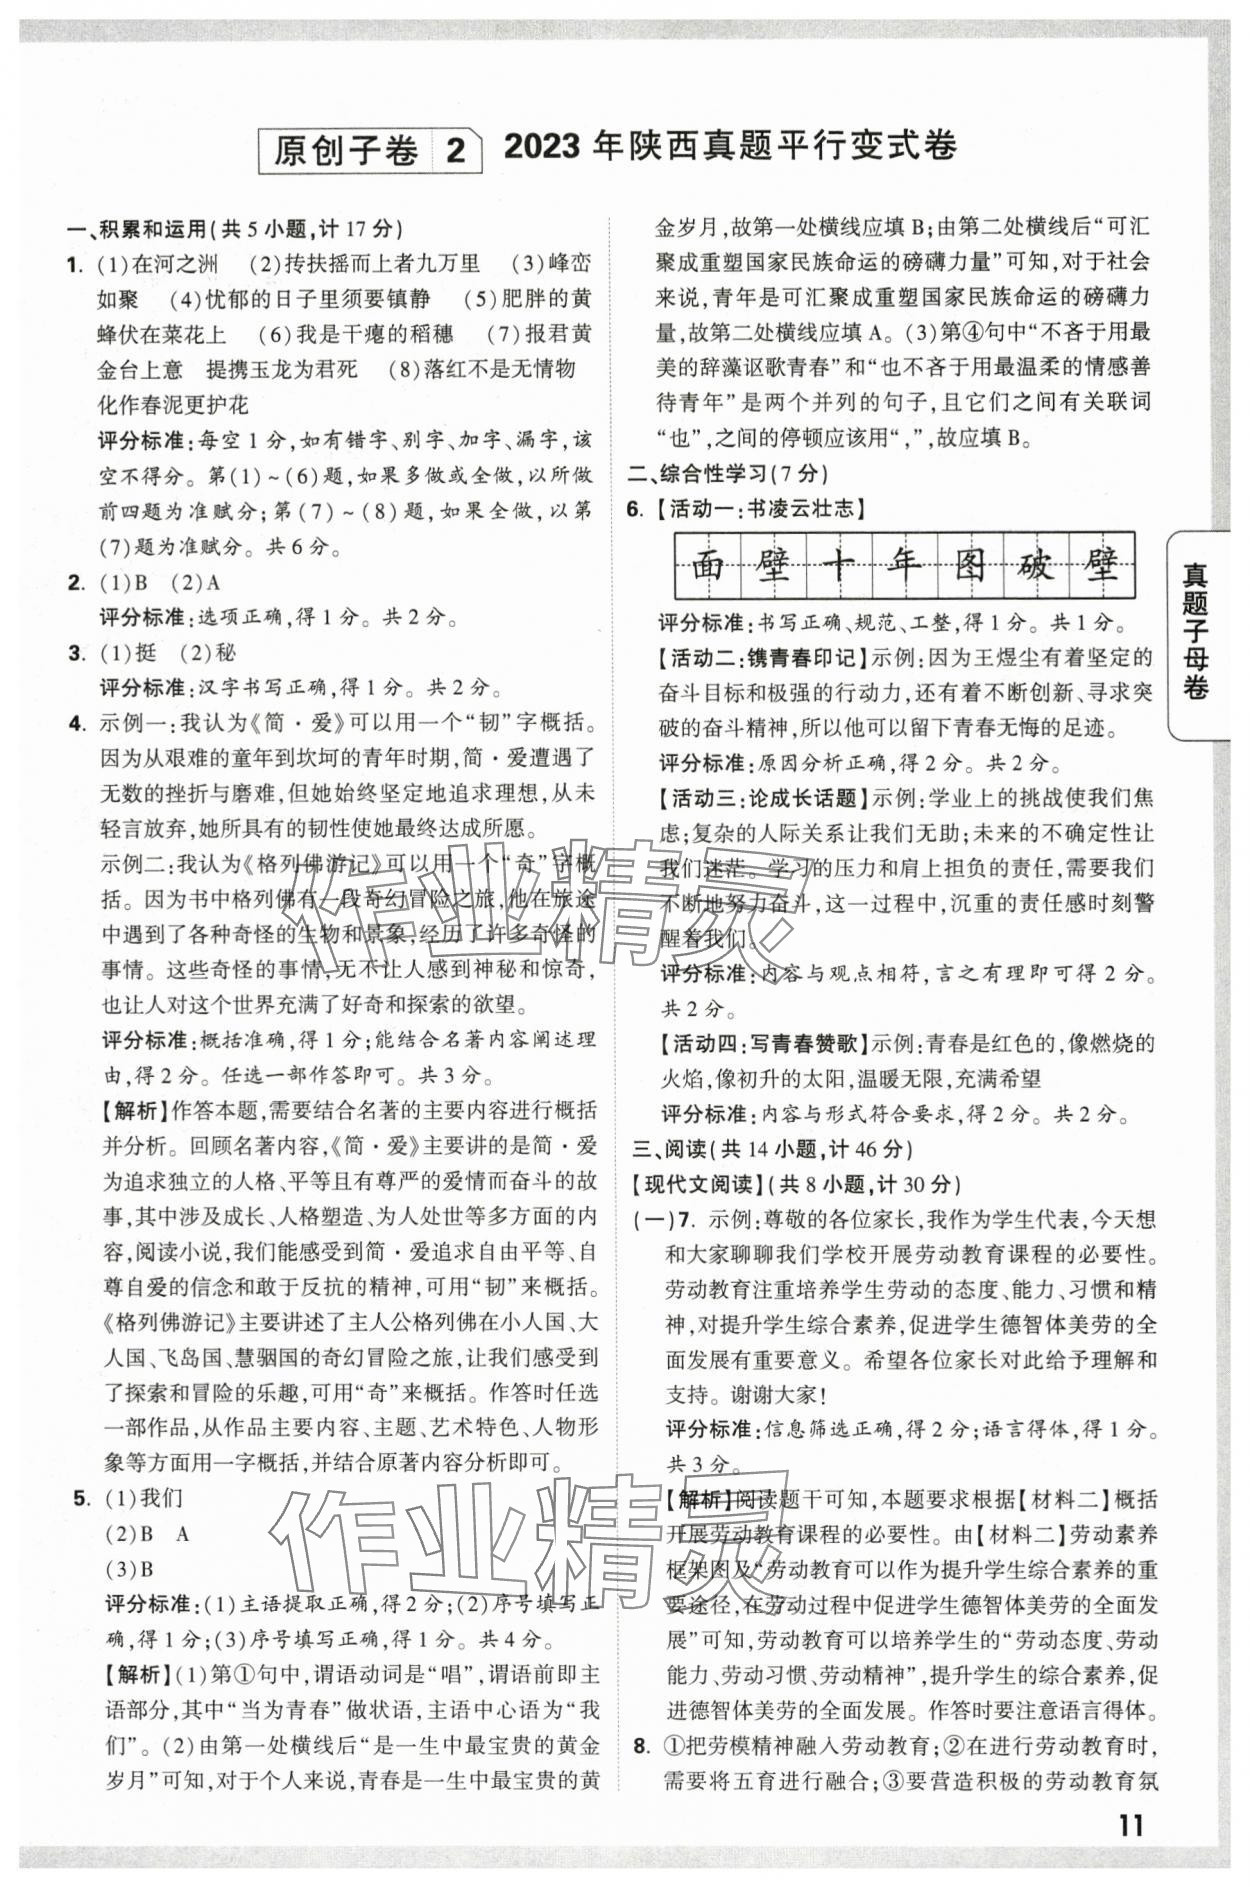 原创子卷 2 2023年陕西真题平行变式卷
一、积累和运用(共5小题,计17分)
1. (1)在河之洲 (2)抟扶摇而上者九万里 (3)峰峦
如聚 (4)忧郁的日子里须要镇静 (5)肥胖的黄
蜂伏在菜花上 (6)我是干瘪的稻穗 (7)报君黄
金台上意 提携玉龙为君死 (8)落红不是无情物
化作春泥更护花
评分标准:每空1分,如有错字、别字、加字、漏字,该
空不得分。第(1)~(6)题,如果多做或全做,以所做
前四题为准赋分;第(7)~(8)题,如果全做,以第
(7)题为准赋分。共6分。
2. (1)B (2)A
评分标准:选项正确,得1分。共2分。
3. (1)挺 (2)秘
评分标准:汉字书写正确,得1分。共2分。
4. 示例一:我认为《简·爱》可以用一个“韧”字概括。
因为从艰难的童年到坎坷的青年时期,简·爱遭遇了
无数的挫折与磨难,但她始终坚定地追求理想,从未
轻言放弃,她所具有的韧性使她最终达成所愿。
示例二:我认为《格列佛游记》可以用一个“奇”字概
括。因为书中格列佛有一段奇幻冒险之旅,他在旅途
中遇到了各种奇怪的生物和景象,经历了许多奇怪的
事情。这些奇怪的事情,无不让人感到神秘和惊奇,
也让人对这个世界充满了好奇和探索的欲望。
评分标准:概括准确,得1分;能结合名著内容阐述理
由,得2分。任选一部作答即可。共3分。
【解析】作答本题,需要结合名著的主要内容进行概括
并分析。回顾名著内容,《简·爱》主要讲的是简·爱
为追求独立的人格、平等且有尊严的爱情而奋斗的故
事,其中涉及成长、人格塑造、为人处世等多方面的内
容,阅读小说,我们能感受到简·爱追求自由平等、自
尊自爱的信念和敢于反抗的精神,可用“韧”来概括。
《格列佛游记》主要讲述了主人公格列佛在小人国、大
人国、飞岛国、慧骃国的奇幻冒险之旅,让我们感受到
了探索和冒险的乐趣,可用“奇”来概括。作答时任选
一部作品,从作品主要内容、主题、艺术特色、人物形
象等方面用一字概括,并结合原著内容分析即可。
5. (1)我们
(2)B A
(3)B
评分标准:(1)主语提取正确,得2分;(2)序号填写正
确,得1分;(3)序号填写正确,得1分。共4分。
【解析】(1)第①句中,谓语动词是“唱”,谓语前即主
语部分,其中“当为青春”做状语,主语中心语为“我
们”。(2)由第一处横线后“是一生中最宝贵的黄金
岁月”可知,对于个人来说,青春是一生中最宝贵的黄
金岁月,故第一处横线应填B;由第二处横线后“可汇
聚成重塑国家民族命运的磅礴力量”可知,对于社会
来说,青年是可汇聚成重塑国家民族命运的磅礴力
量,故第二处横线应填A。(3)第④句中“不吝于用最
美的辞藻讴歌青春”和“也不吝于用最温柔的情感善
待青年”是两个并列的句子,且它们之间有关联词
“也”,之间的停顿应该用“,”,故应填B。
二、综合性学习(7分)
6. 【活动一:书凌云壮志】
面壁十年图破壁
评分标准:书写正确、规范、工整,得1分。共1分。
【活动二:镌青春印记】示例:因为王煜尘有着坚定的
奋斗目标和极强的行动力,还有着不断创新、寻求突
破的奋斗精神,所以他可以留下青春无悔的足迹。
评分标准:原因分析正确,得2分。共2分。
【活动三:论成长话题】示例:学业上的挑战使我们焦
虑;复杂的人际关系让我们无助;未来的不确定性让
我们迷茫。学习的压力和肩上担负的责任,需要我们
不断地努力奋斗,这一过程中,沉重的责任感时刻警
醒着我们。
评分标准:内容与观点相符,言之有理即可得2分。
共2分。
【活动四:写青春赞歌】示例:青春是红色的,像燃烧的
火焰,像初升的太阳,温暖无限,充满希望
评分标准:内容与形式符合要求,得2分。共2分。
三、阅读(共14小题,计46分)
【现代文阅读】(共8小题,计30分)
(一)7. 示例:尊敬的各位家长,我作为学生代表,今天想
和大家聊聊我们学校开展劳动教育课程的必要性。
劳动教育注重培养学生劳动的态度、能力、习惯和精
神,对提升学生综合素养,促进学生德智体美劳的全
面发展有重要意义。希望各位家长对此给予理解和
支持。谢谢大家!
评分标准:信息筛选正确,得2分;语言得体,得1分。
共3分。
【解析】阅读题干可知,本题要求根据【材料二】概括
开展劳动教育课程的必要性。由【材料二】劳动素养
框架图及“劳动教育可以作为提升学生综合素养的重
要途径,在劳动过程中促进学生德智体美劳的全面发
展”可知,劳动教育可以培养学生的“劳动态度、劳动
能力、劳动习惯、劳动精神”,提升学生的综合素养,促
进德智体美劳的全面发展。作答时要注意语言得体。
8. ①把劳模精神融入劳动教育;②在进行劳动教育时,
需要将五育进行融合;③要营造积极的劳动教育氛
真题子母卷
11
作业精灵
作业精灵